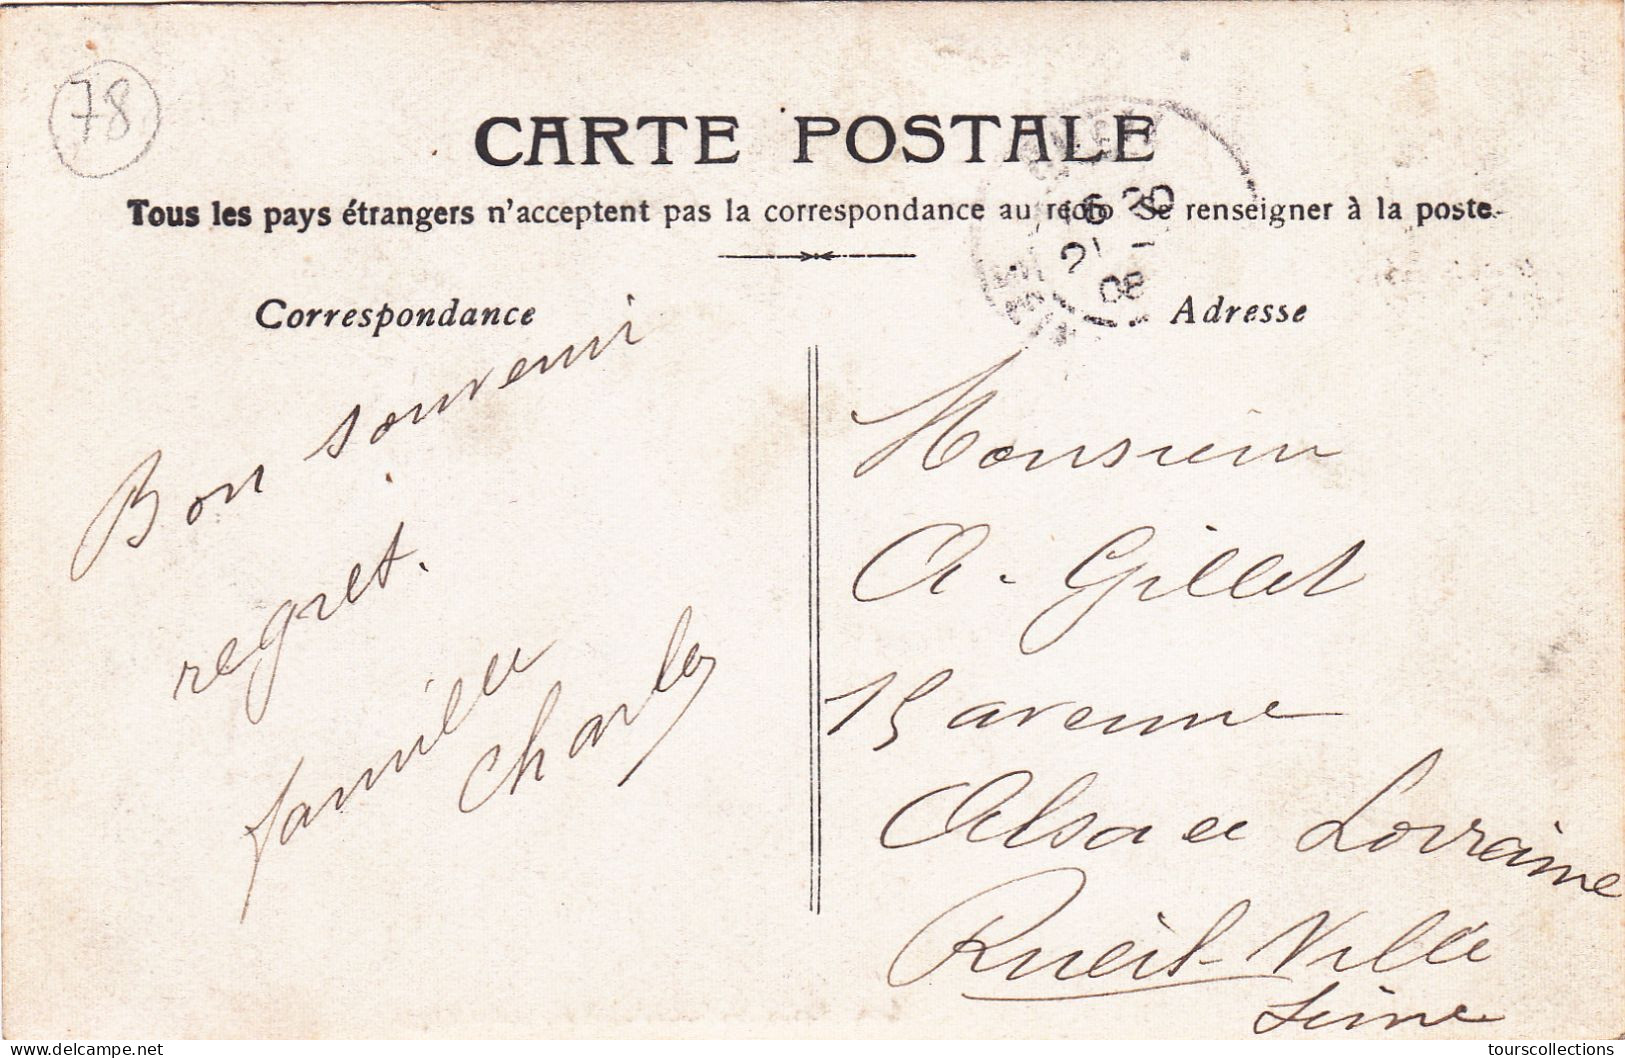 78
CARTE POSTALE
Tous les pays étrangers n'acceptent pas la correspondance au recto Se renseigner à la poste.
16 20
2
08
Correspondance
Adresse
Bon souvenir
regret.
famille
Charles
Monsieur
A. Gillet
15 avenue
Alsace Lorraine
Rueil-Ville
Seine
tourscollections